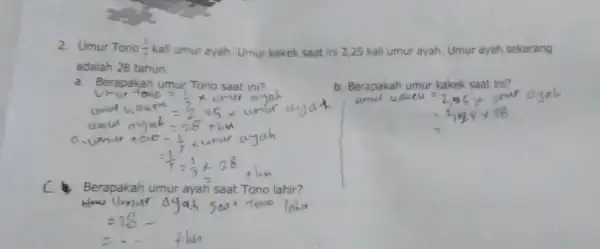 2. Umur Tono 1/7 kali umur ayah. Umur kakek saat ini 2,25 kali umur ayah. Umur ayah sekarang
adalah 28 tahun.
a. Berapakah umur Tono saat ini?
Umur tono = x umur ayah
umur = x umur ayah
umur ayah = 28 thn
a. umur tono = 1/7 x umur ayah
= 1/7 x 28
= thn
b. Berapakah umur kakek saat ini?
umur kakek = x umur ayah
=
C. Berapakah umur ayah saat Tono lahir?
Umur ayah saat Tono lahir
= 28 -
= - - thn